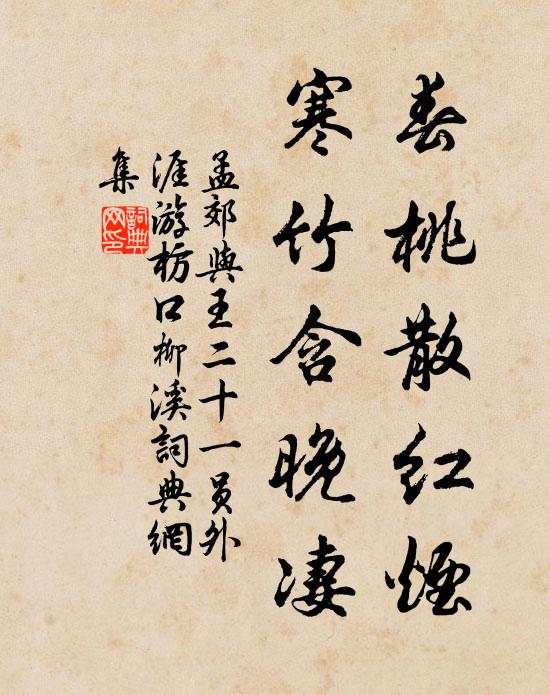 春桃散红烟
寒竹含晚凄
孟郊與王二十一员外
涯游枋口柳溪詞典網
集
詞典網印